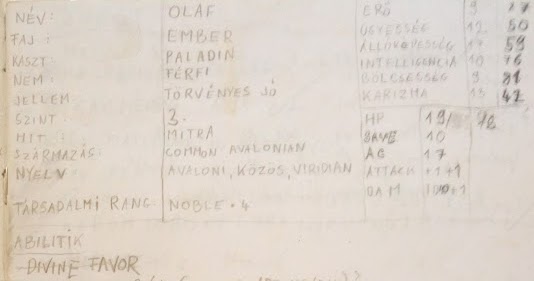 NÉV: OLAF ERŐ 9
FAJ: EMBER ÜGYESSÉG 12 50
KASZT: PALADIN ÁLLÓKÉPESSÉG 17 59
NEM: FÉRFI INTELLIGENCIA 10 76
JELLEM TÖRVÉNYES JÓ BÖLCSESSÉG 9
SZINT: 3. KARIZMA 42
HIT: MITRA HP 19/
SZÁRMAZÁS: COMMON AVALONIAN SAVE 10
NYELV: AVALONI, KÖZÖS, VIRIDIAN AC 17
ATTACK +1+1
TÁRSADALMI RANG: NOBLE • 4 DAM
ABILITIK
- DIVINE FAVOR